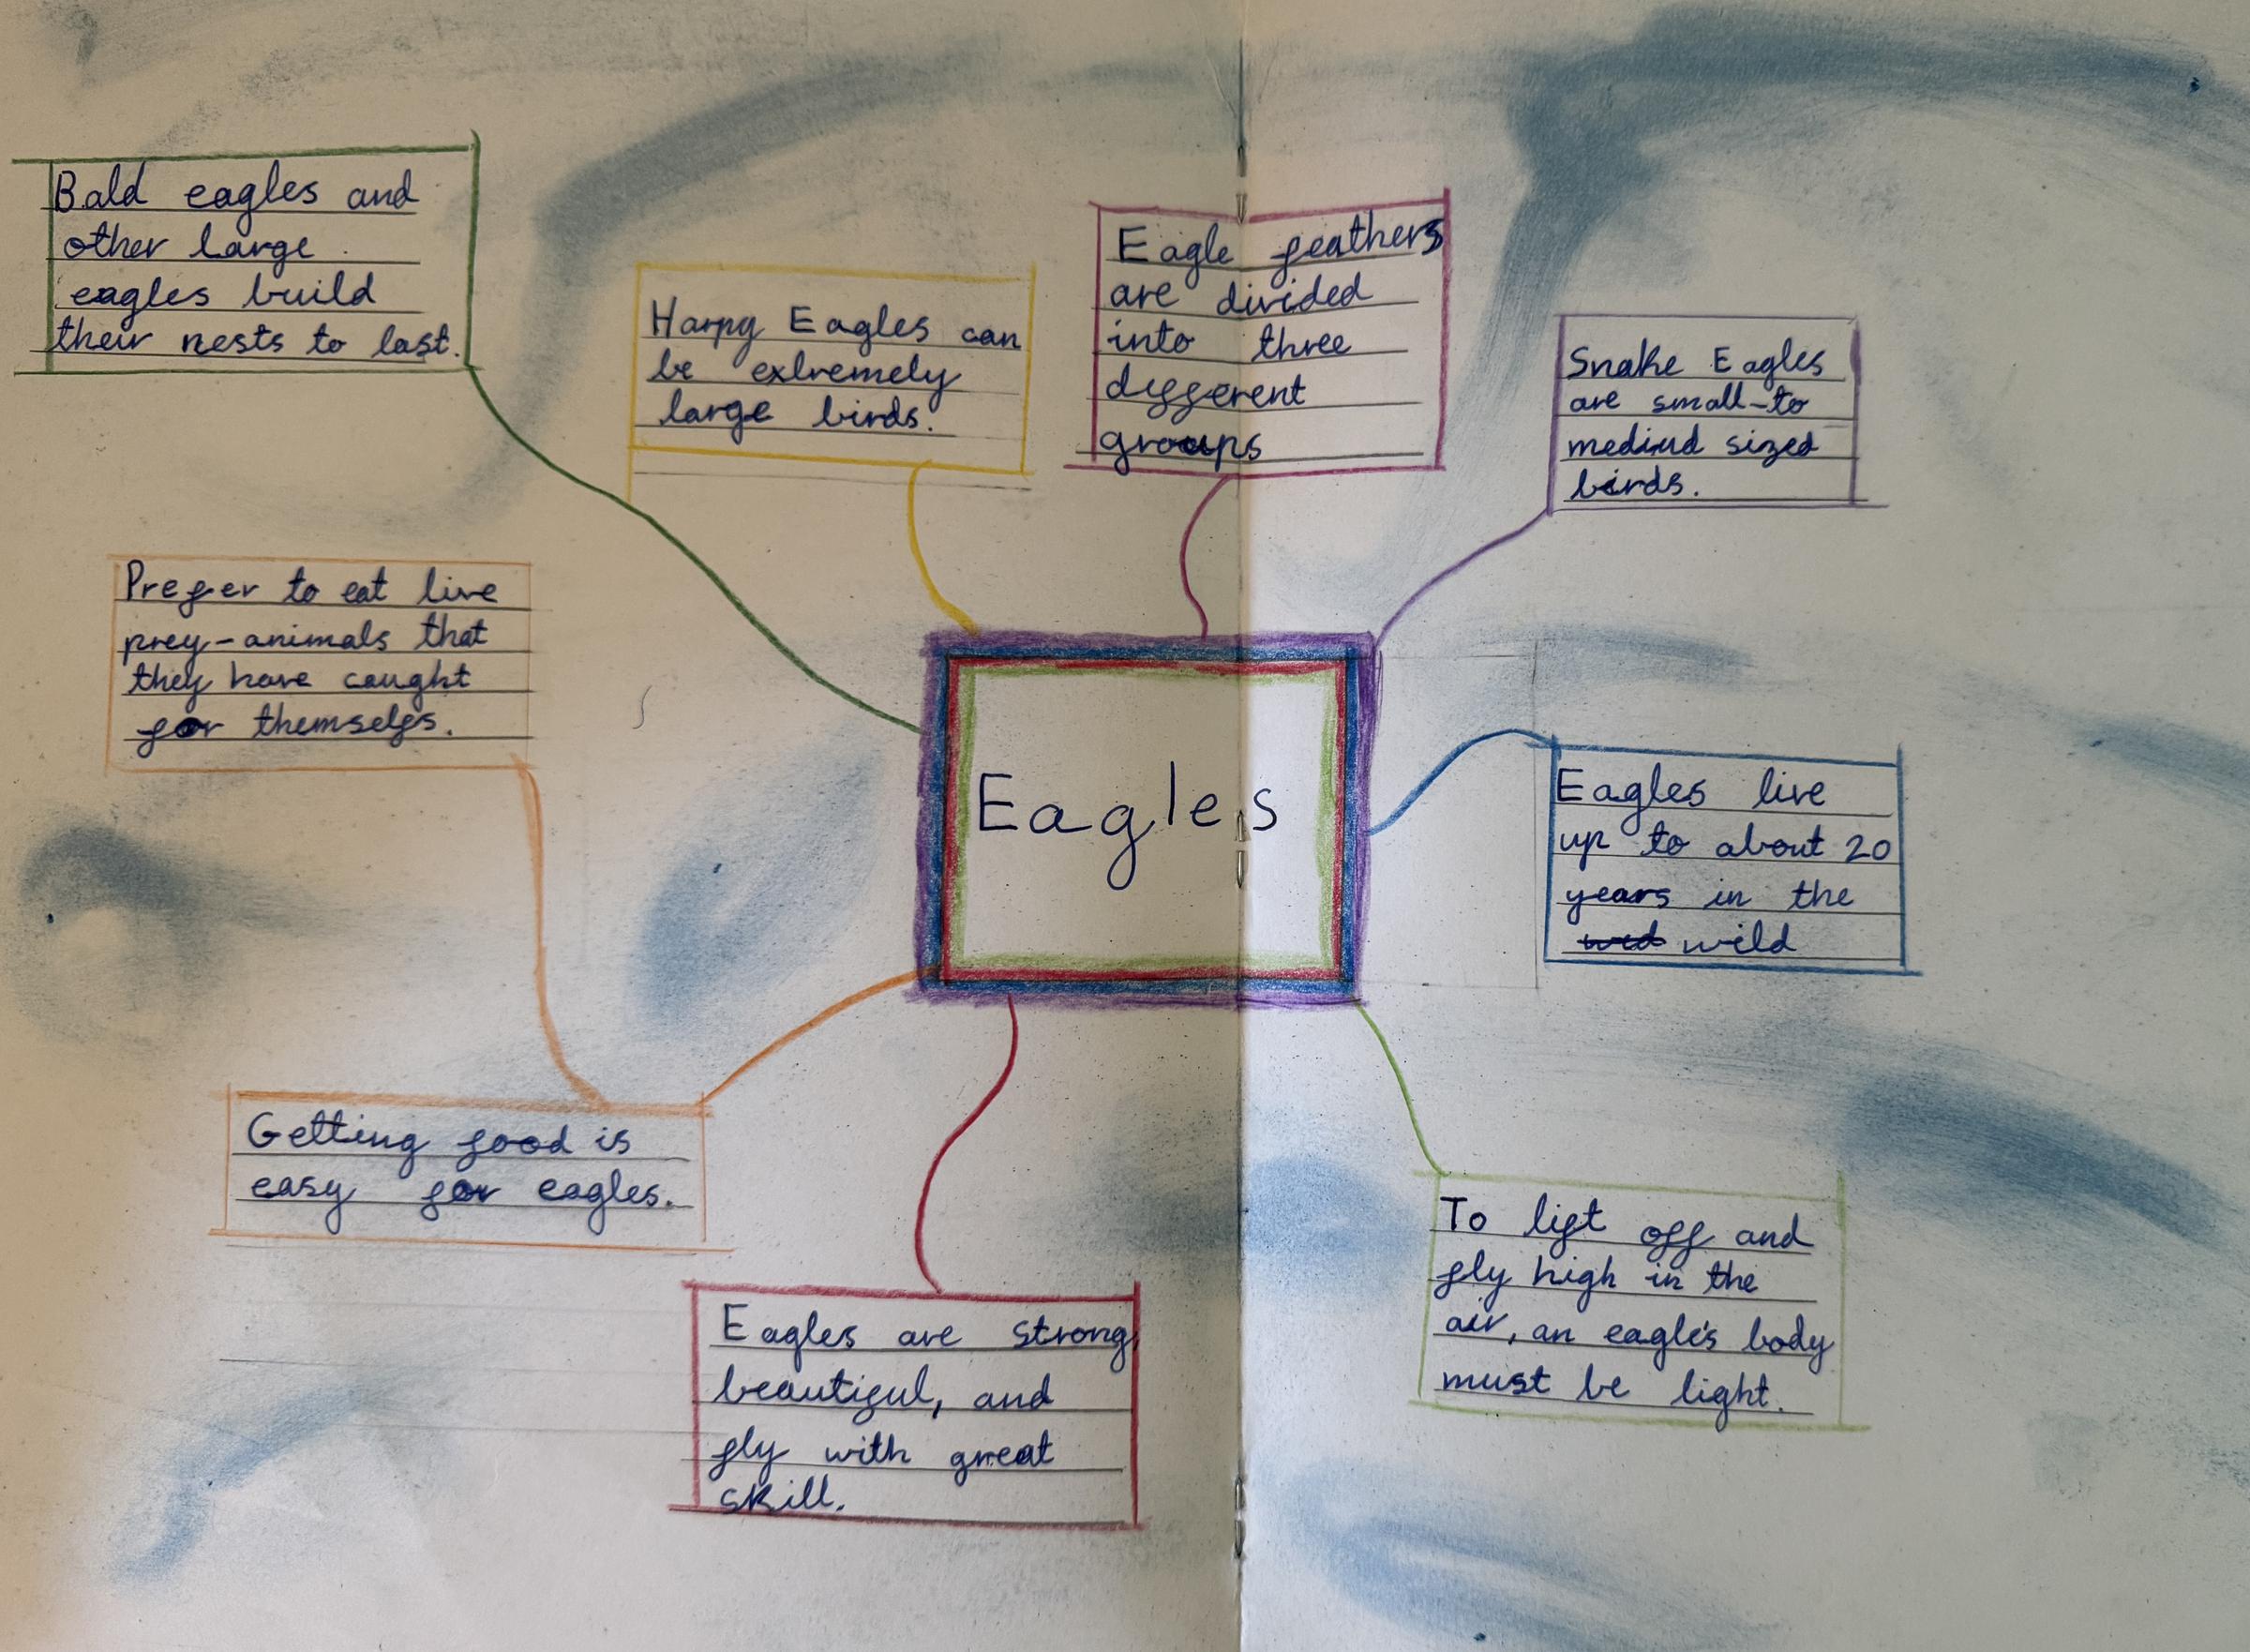 Bald eagles and
other large
eagles build
their nests to last.
Harpy Eagles can
be extremely
large birds.
Eagle feathers
are divided
into three
different
groups
Snake Eagles
are small-to
mediud sized
birds.
Prefer to eat live
prey-animals that
they have caught
for themselfs.
Eagles
Eagles live
up to about 20
years in the
wild
Getting food is
easy for eagles.
Eagles are strong,
beautiful, and
fly with great
skill.
To lift off and
fly high in the
air, an eagle's body
must be light.